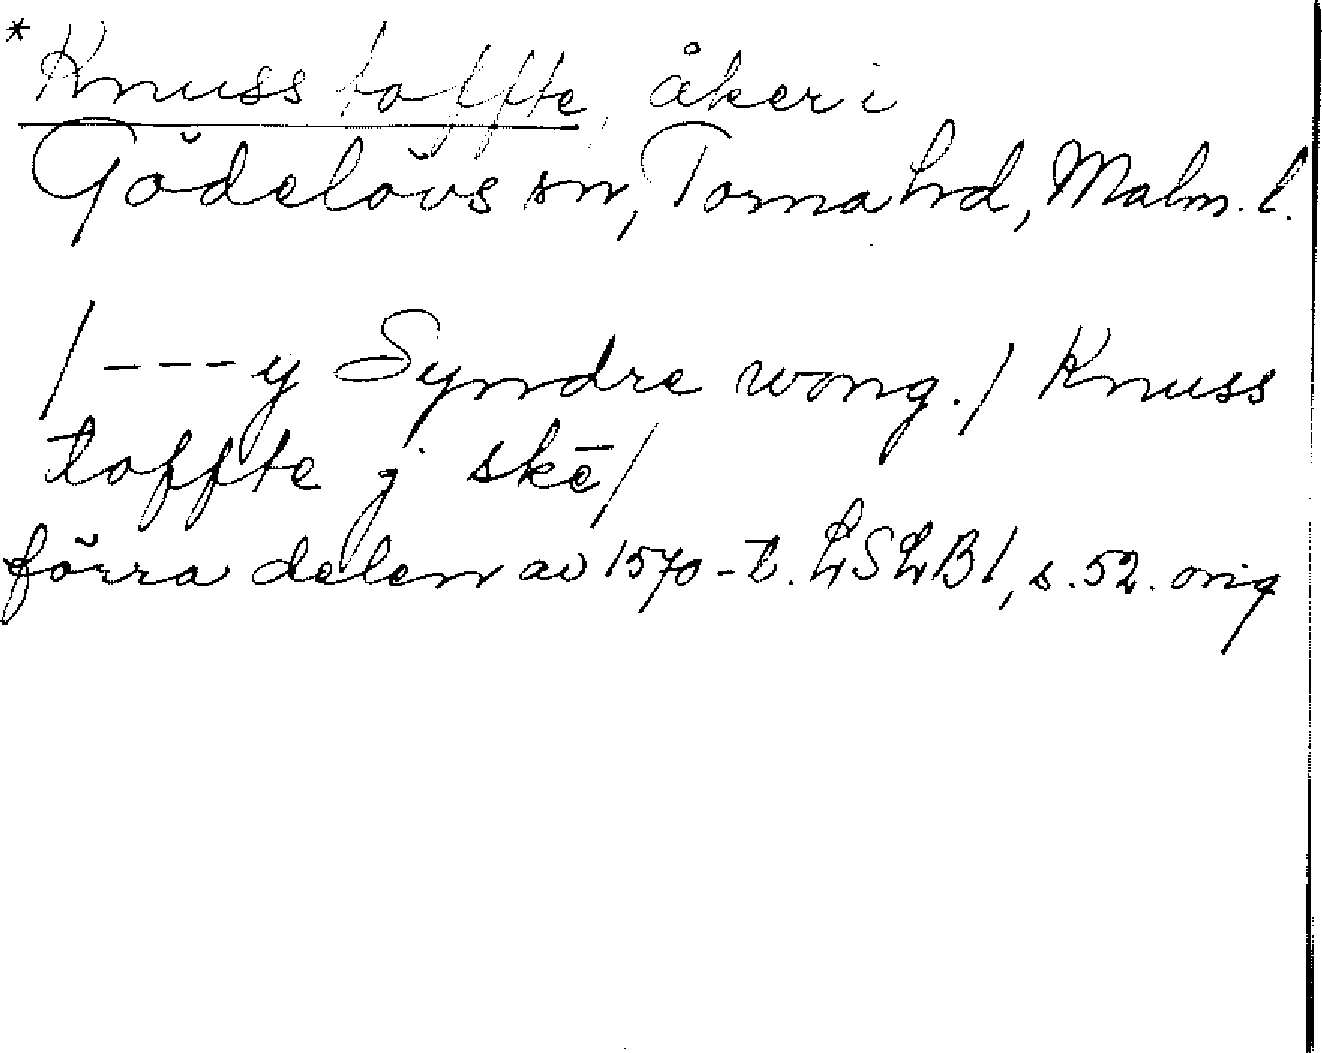 *Knuss toffte, åker i
Gödelövs sn, Torna hd, Malm. l.
/---y Syndre wong./ Knuss
toffte j skē/
förra delen av 1570-t. LSLB1, s. 52. orig